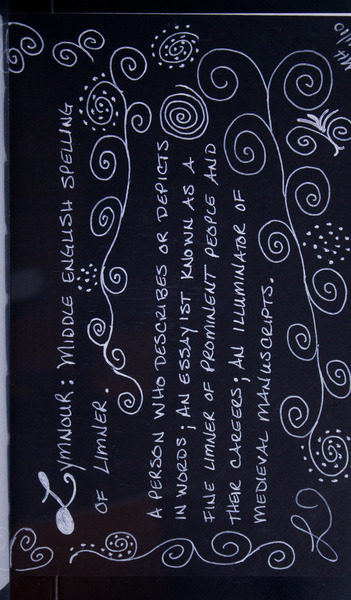 LYMNOUR: MIDDLE ENGLISH SPELLING
OF LIMNER.
A PERSON WHO DESCRIBES OR DEPICTS
IN WORDS; AN ESSAYIST KNOWN AS A
FINE LIMNER OF PROMINENT PEOPLE AND
THEIR CAREERS; AN ILLUMINATOR OF
MEDIEVAL MANUSCRIPTS.